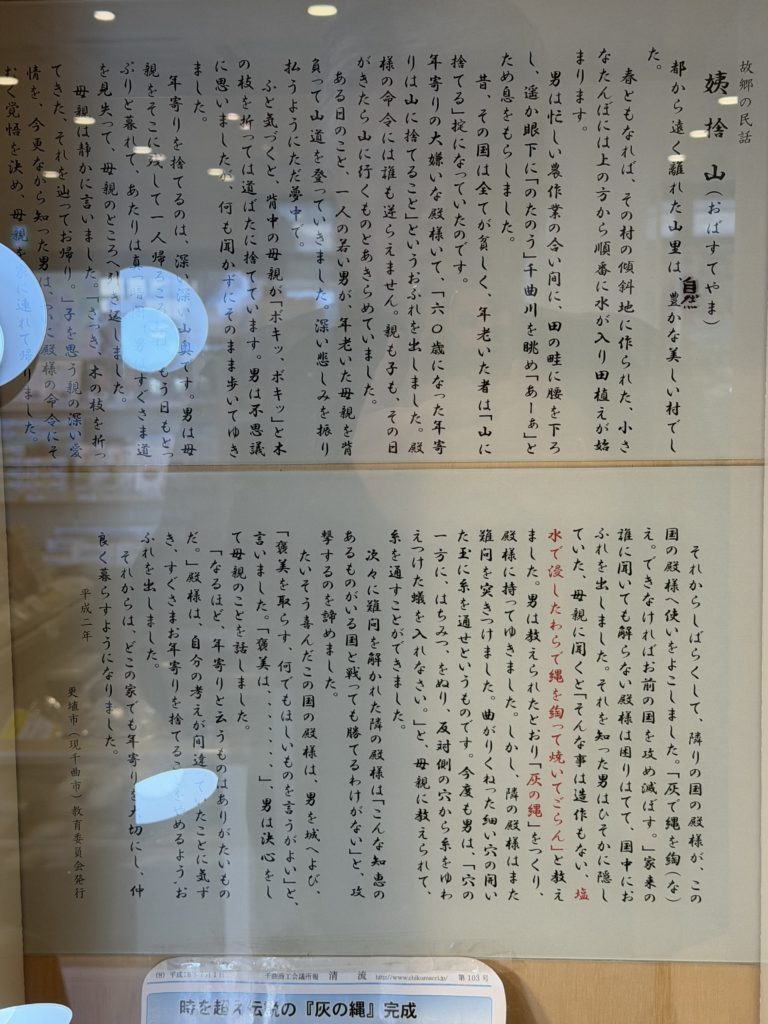 故郷の民話
姨捨山(おばすてやま)
都から遠く離れた山里は、自然豊かな美しい村でし
た。
春ともなれば、その村の傾斜地に作られた、小さ
なたんぼには上の方から順番に水が入り田植えが始
まります。
男は忙しい農作業の合い間に、田の畦に腰を下ろ
し、遥か眼下に「のたのう」千曲川を眺め「あーぁ」と
ため息をもらしました。
昔、その国は全てが貧しく、年老いた者は「山に
捨てる」掟になっていたのです。
年寄りの大嫌いな殿様いて、「六０歳になった年寄
りは山に捨てること」というおふれを出しました。殿
様の命令には誰も逆らえません。親も子も、その日
がきたら山に行くものとあきらめていました。
ある日のこと、一人の若い男が、年老いた母親を背
負って山道を登っていきました。深い悲しみを振り
払うようにただ夢中で。
ふと気づくと、背中の母親が「ボキッ、ボキッ」と木
の枝を折っては道ばたに捨てています。男は不思議
に思いましたが、何も聞かずにそのまま歩いてゆき
ました。
年寄りを捨てるのは、深い深い山奥です。男は母
親をそこに残して一人帰るころ もう日もとっ
ぷりと暮れて、あたりは真 すぐさま道
を見失って、母親のところへ引き返しました。
母親は静かに言いました。「さっき、木の枝を折っ
てきた、それを辿ってお帰り。」子を思う親の深い愛
情を、今更ながら知った男は、 殿様の命令にそ
むく覚悟を決め、母親を に連れて帰りました。
それからしばらくして、隣りの国の殿様が、この
国の殿様へ使いをよこしました。「灰で縄を綯(な)
え。できなければお前の国を攻め滅ぼす。」家来の
誰に聞いても解らない殿様は困りはてて、国中にお
ふれを出しました。それを知った男はひそかに隠し
ていた、母親に聞くと「そんな事は造作もない、塩
水で浸したわらで縄を綯って焼いてごらん」と教え
ました。男は教えられたとおり「灰の縄」をつくり、
殿様に持ってゆきました。しかし、隣の殿様はまた
難問を突きつけました。曲がりくねった細い穴の開い
た玉に糸を通せというものです。今度も男は、「穴の
一方に、はちみつ、をぬり、反対側の穴から糸をゆわ
えつけた蟻を入れなさい。」と、母親に教えられて、
糸を通すことができました。
次々に難問を解かれた隣の殿様は「こんな知恵の
あるものがいる国と戦っても勝てるわけがない」と、攻
撃するのを諦めました。
たいそう喜んだこの国の殿様は、男を城へよび、
「褒美を取らす、何でもほしいものを言うがよい」と、
言いました。「褒美は、、、、、、」、男は決心をし
て母親のことを話しました。
「なるほど、年寄りと云うものはありがたいもの
だ。」殿様は、自分の考えが間違っていたことに気ず
き、すぐさまお年寄りを捨てることをやめるよう、お
ふれを出しました。
それからは、どこの家でも年寄りを大切にし、仲
良く暮らすようになりました。
平成二年
更埴市(現千曲市)教育委員会発行
千曲商工会議所報 清流 http://www.chikumacci.jp/ 第103号
時を超え伝説の『灰の縄』完成